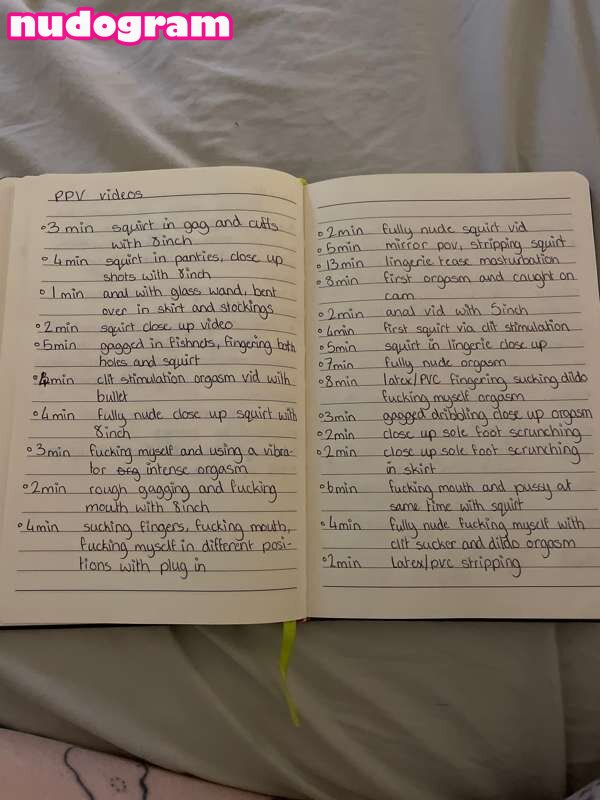 nudogram
PPV videos
3 min squirt in gag and cuffs
with 8inch
4 min squirt in panties, close up
shots with 8inch
1 min anal with glass wand, bent
over in skirt and stockings
2min squirt close up video
5min gagged in fishnets, fingering both
holes and squirt
4min clit stimulation orgasm vid with
bullet
4min fully nude close up squirt with
8inch
3min fucking myself and using a vibra-
tor org intense orgasm
2min rough gagging and fucking
mouth with 8inch
4min sucking fingers, fucking mouth,
fucking myself in different posi-
tions with plug in
2min fully nude squirt vid
5min mirror pov, stripping squirt
13min lingerie tease masturbation
8min first orgasm and caught on
cam
2min anal vid with 5inch
4min first squirt via clit stimulation
5min squirt in lingerie close up
7min fully nude orgasm
8min latex/PVC fingering sucking dildo
fucking myself orgasm
3min gagged dribbling close up orgasm
2min close up sole foot scrunching
2min close up sole foot scrunching
in skirt
6min fucking mouth and pussy at
same time with squirt
4min fully nude fucking myself with
clit sucker and dildo orgasm
2min latex/pvc stripping